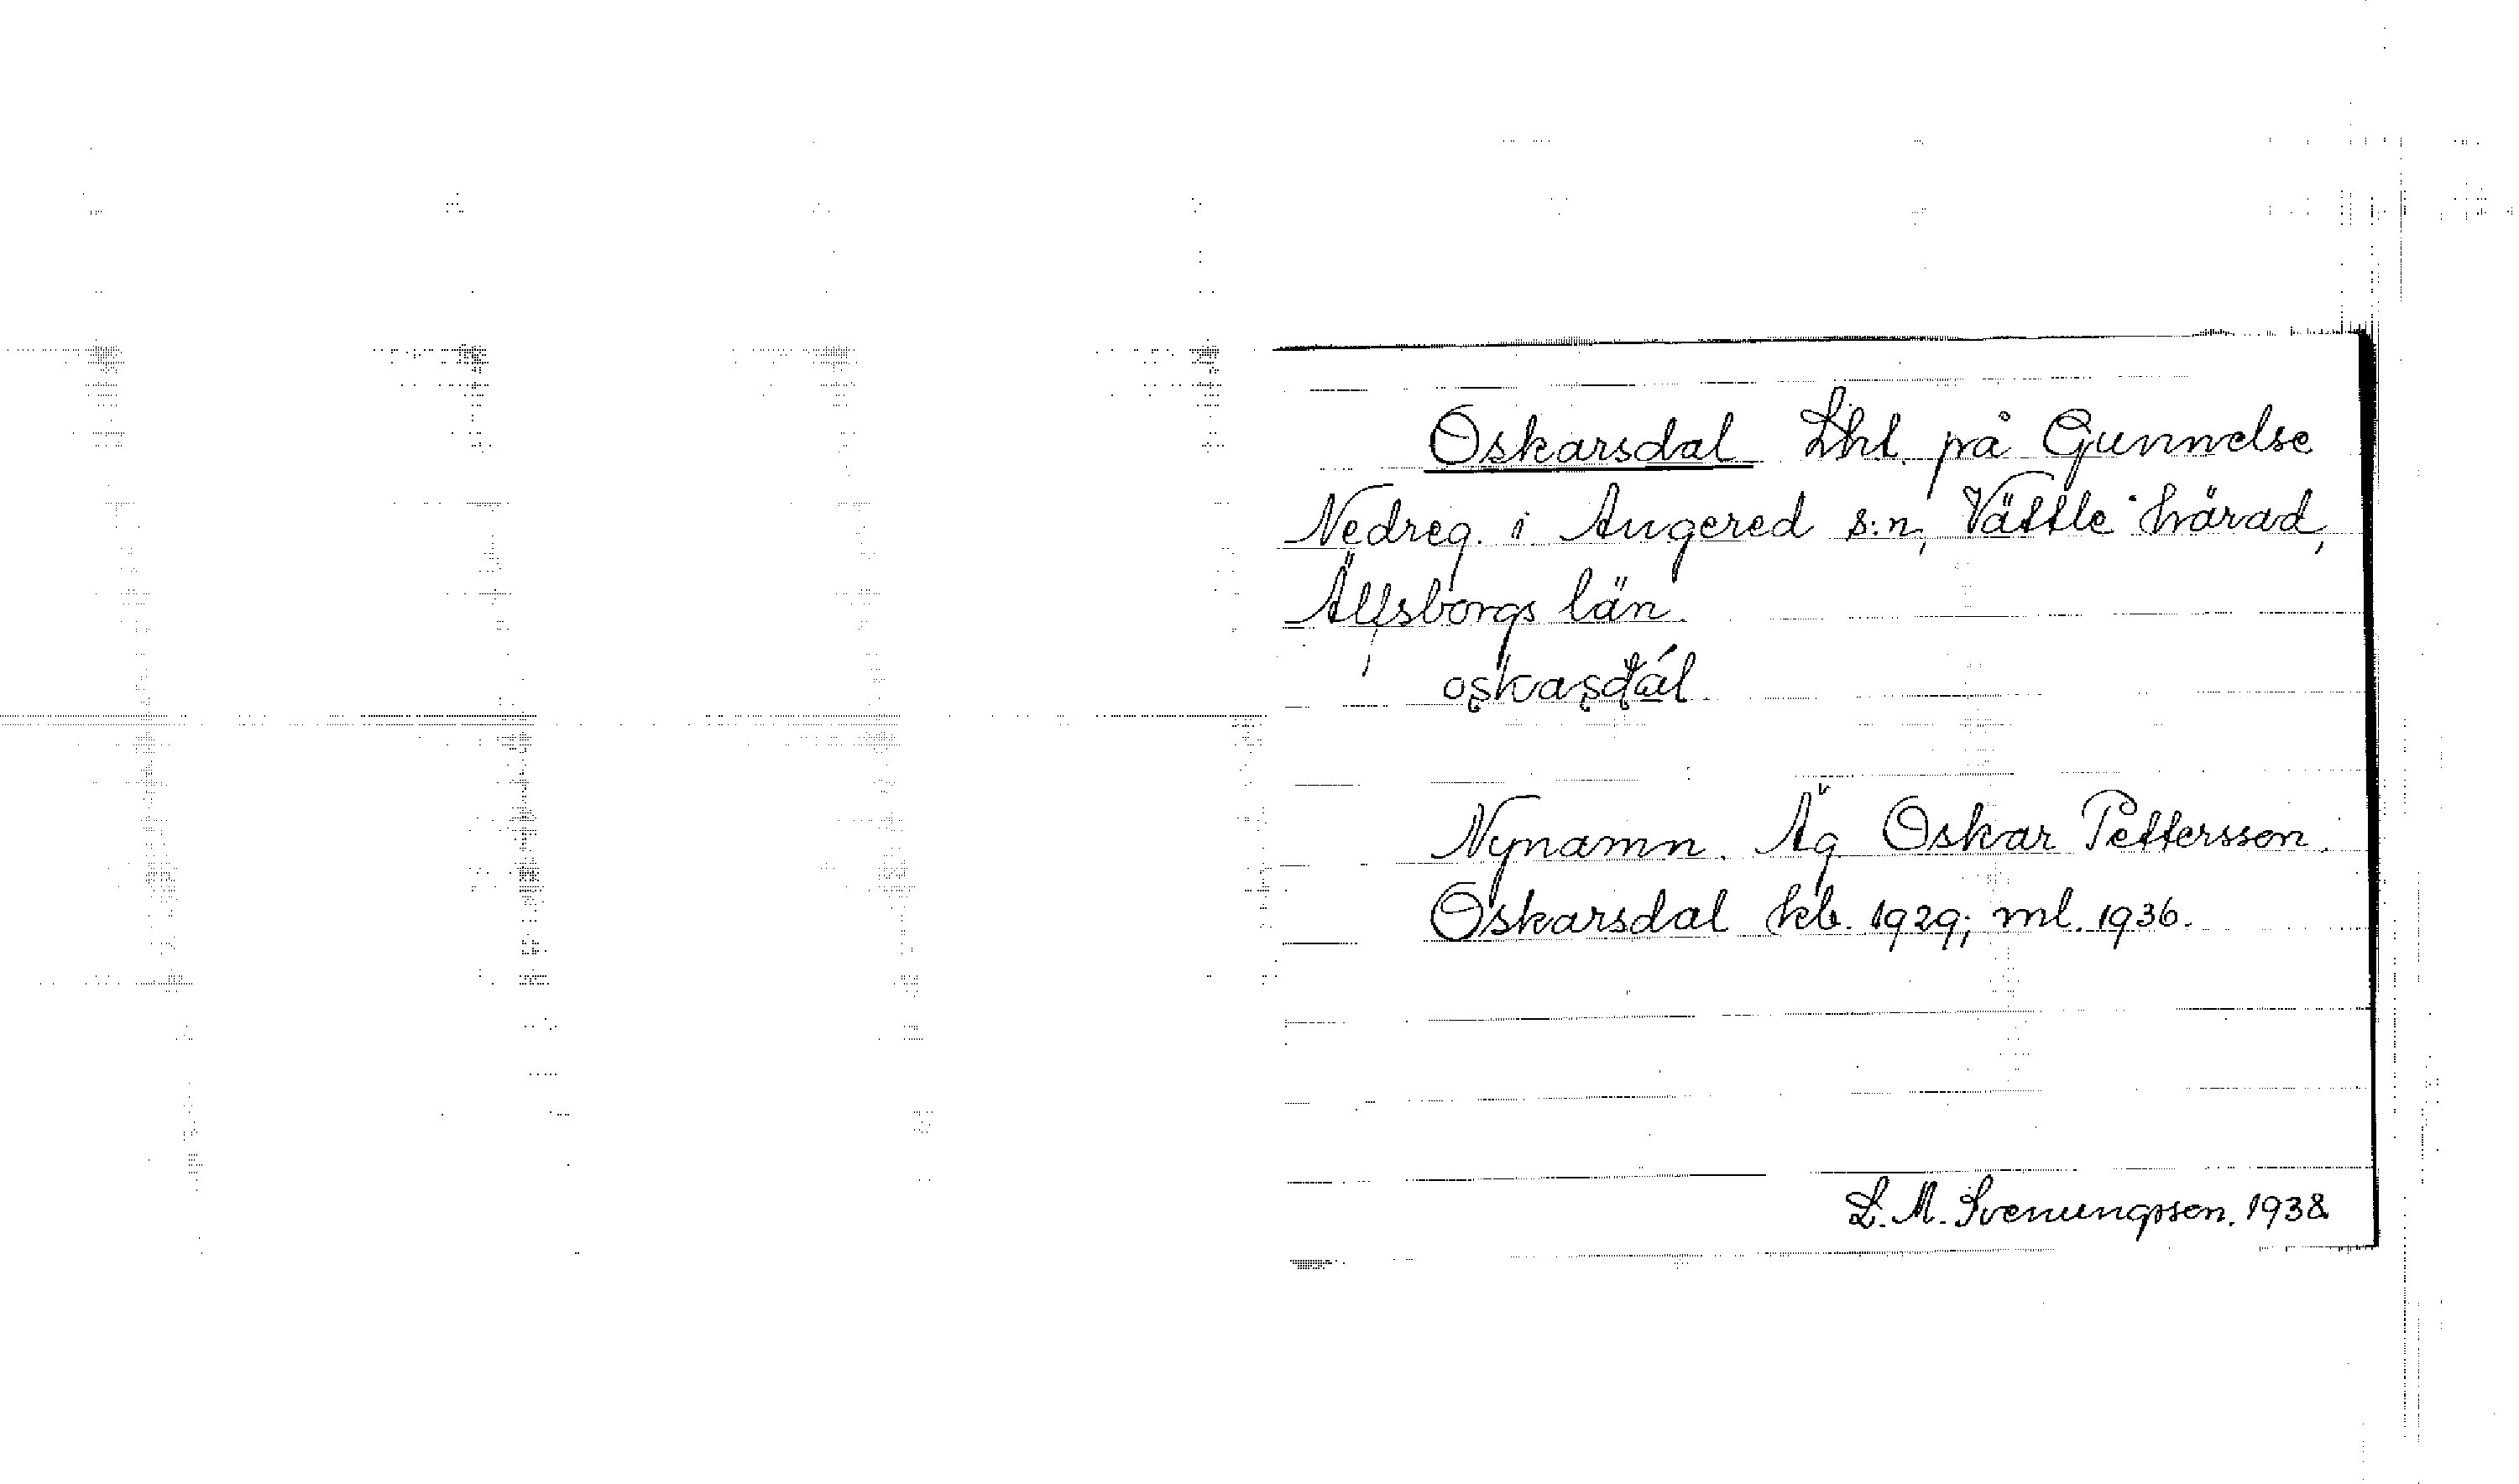 Oskarsdal Lht. på Gunnelse
Nedreg. i Angered s:n, Vättle härad,
Älfsborgs län.
Nynamn. Äg. Oskar Pettersson.
Oskarsdal kb. 1929; ml. 1936.
L. M. Svenungsson. 1938